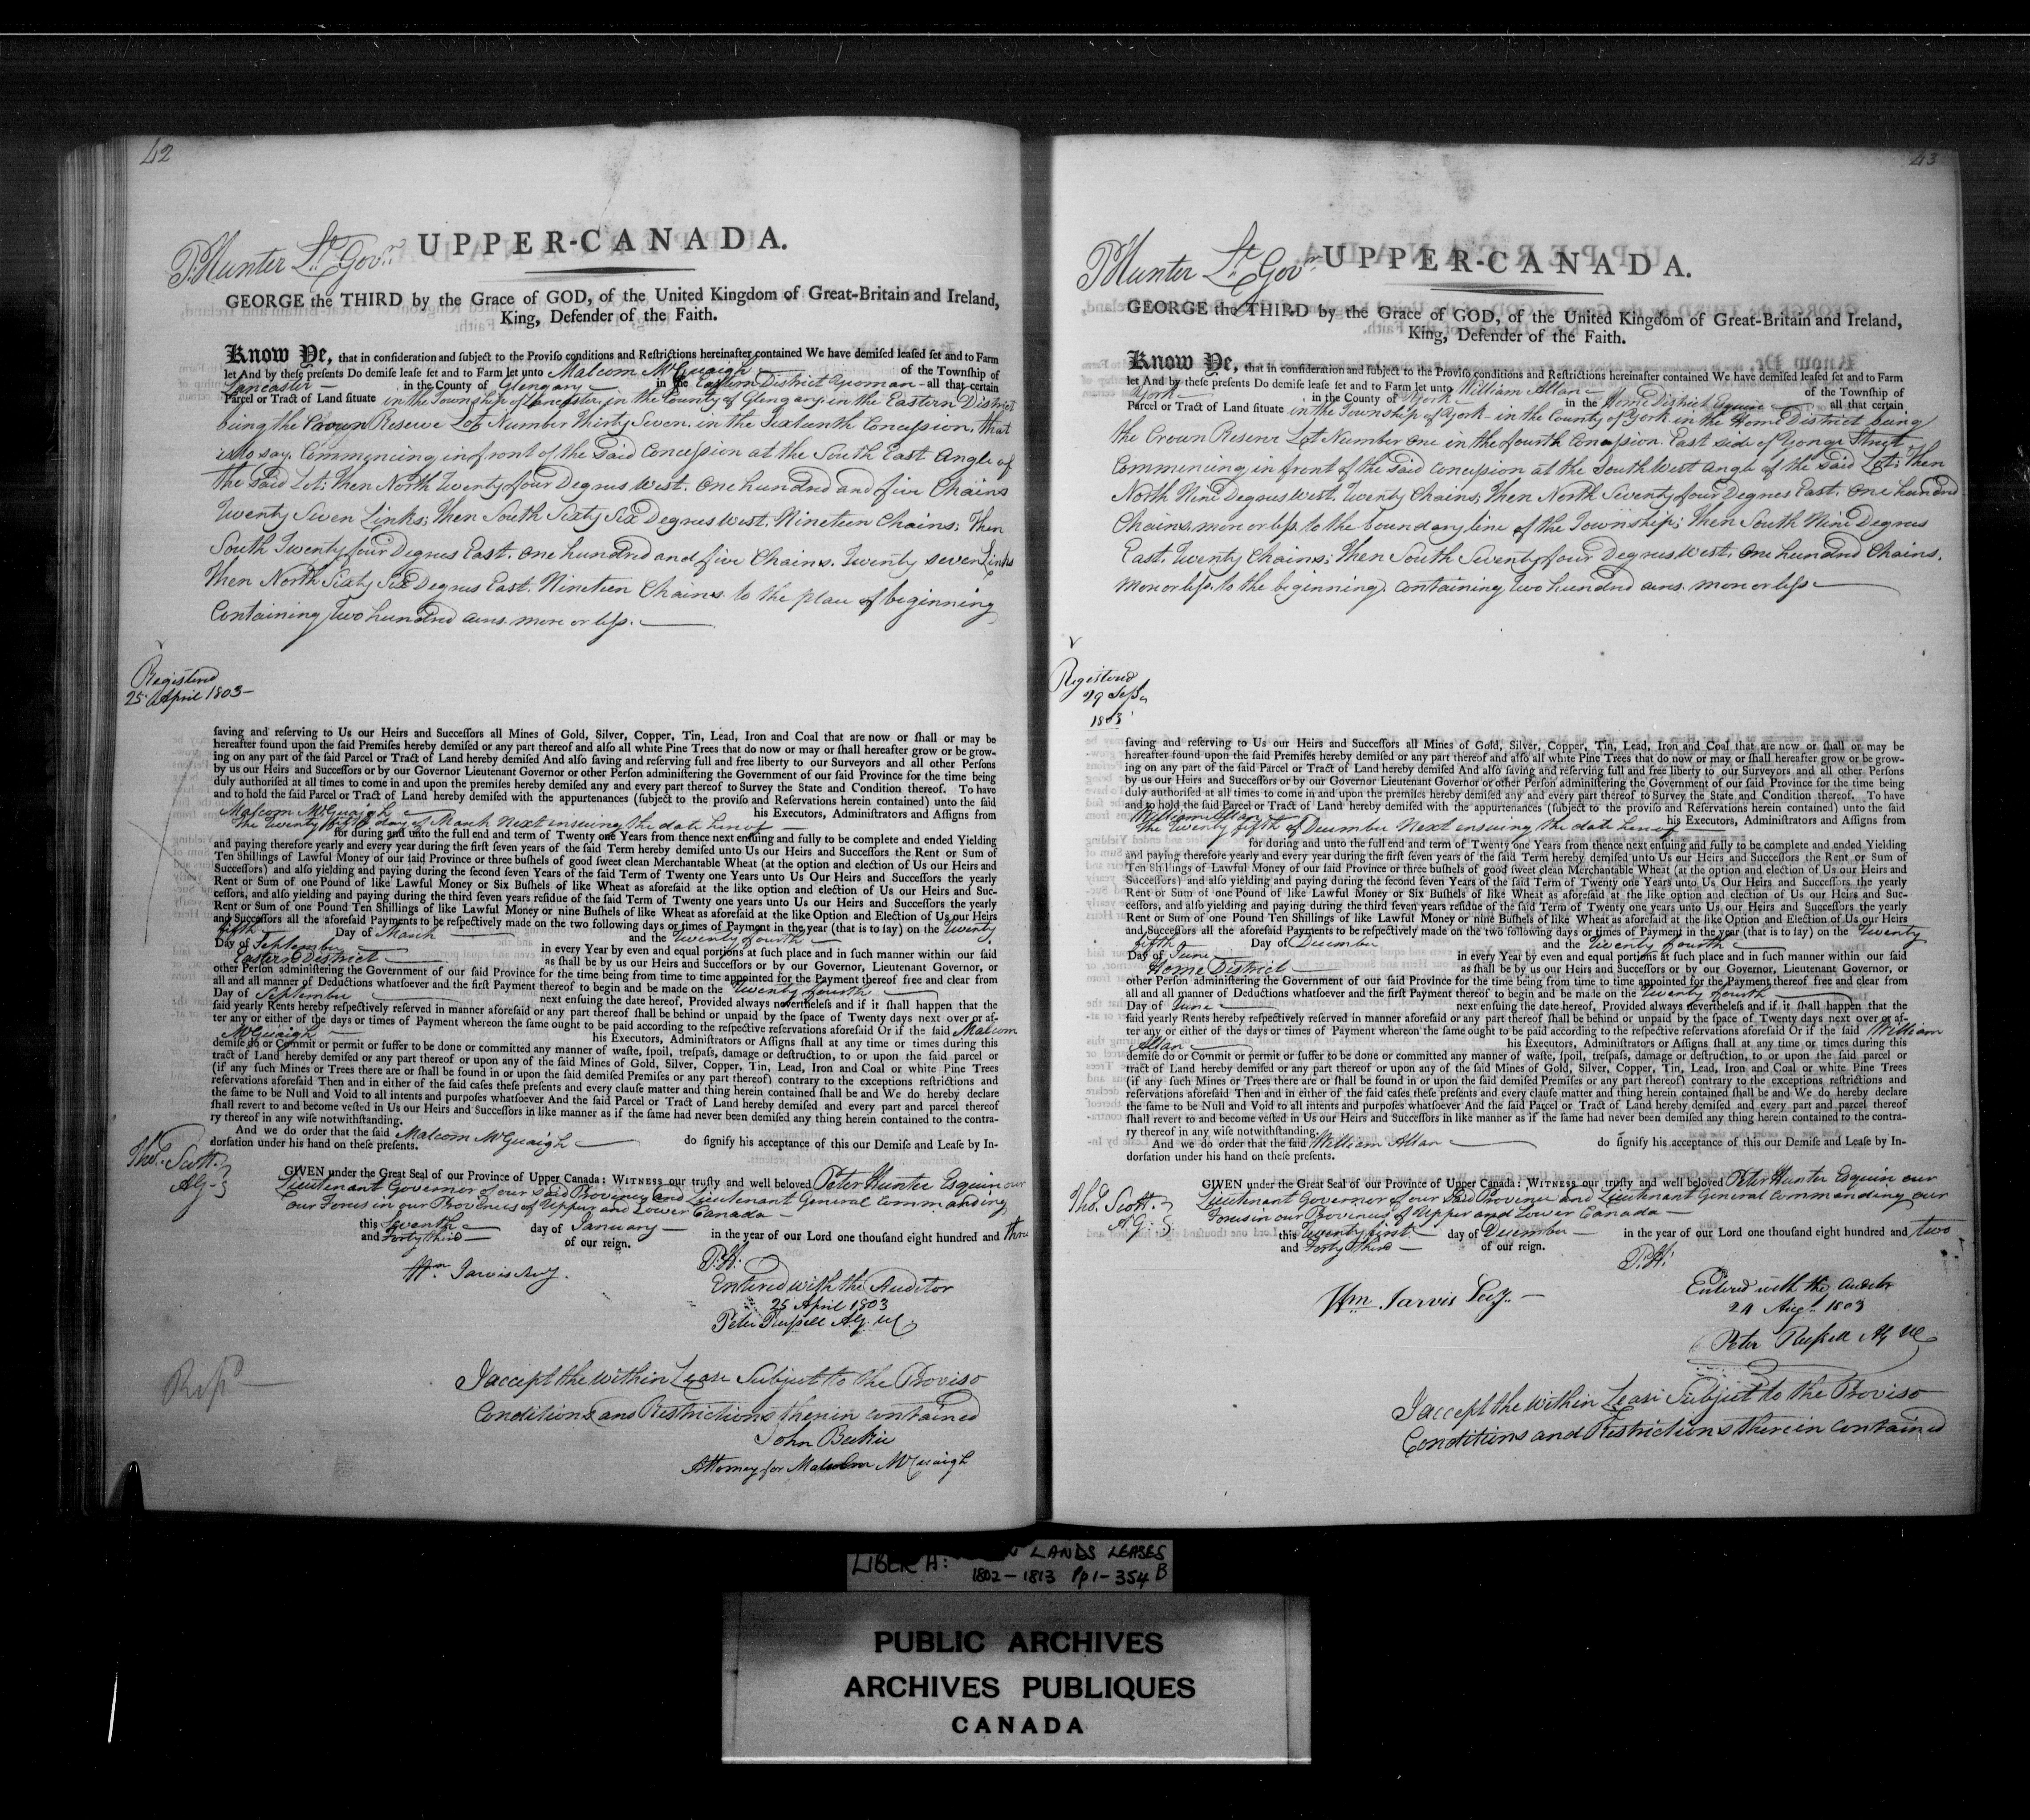 42
UPPER-CANADA.
P. Hunter Lt. Govr.
GEORGE the THIRD by the Grace of GOD, of the United Kingdom of Great-Britain and Ireland,
King, Defender of the Faith.
Know Ye, that in consideration and subject to the Proviso conditions and Restrictions hereinafter contained We have demised leased set and to Farm
let And by these presents Do demise lease set and to Farm let unto Malcom McGuaigh of the Township of
Lancaster in the County of Glengary in the Eastern District Yeoman - all that certain
Parcel or Tract of Land situate in the Township of Lancaster, in the County of Glengary in the Eastern District
being the Crown Reserve Lot Number Thirty Seven. in the Sixteenth Concession, that
is to say, Commencing in front of the Said Concession at the South East Angle of
the Said Lot; Then North Twenty four Degrees West. One hundred and five Chains
Twenty Seven Links; Then South Sixty Six Degrees West. Nineteen Chains; Then
South Twenty four Degrees East. One hundred and five Chains. Twenty seven Links
Then North Sixty Six Degrees East. Nineteen Chains to the place of beginning
Containing Two hundred acres more or less.
Registered
25 April 1803 -
saving and reserving to Us our Heirs and Successors all Mines of Gold, Silver, Copper, Tin, Lead, Iron and Coal that are now or shall or may be
hereafter found upon the said Premises hereby demised or any part thereof and also all white Pine Trees that do now or may or shall hereafter grow or be grow-
ing on any part of the said Parcel or Tract of Land hereby demised And also saving and reserving full and free liberty to our Surveyors and all other Persons
by us our Heirs and Successors or by our Governor Lieutenant Governor or other Person administering the Government of our said Province for the time being
duly authorised at all times to come in and upon the premises hereby demised any and every part thereof to Survey the State and Condition thereof. To have
and to hold the said Parcel or Tract of Land hereby demised with the appurtenances (subject to the proviso and Reservations herein contained) unto the said
Malcom McGuaigh his Executors, Administrators and Assigns from
the Twenty fifth day of March Next ensuing the date hereof
for during and unto the full end and term of Twenty one Years from thence next ensuing and fully to be complete and ended Yielding
and paying therefore yearly and every year during the first seven years of the said Term hereby demised unto Us our Heirs and Successors the Rent or Sum of
Ten Shillings of Lawful Money of our said Province or three bushels of good sweet clean Merchantable Wheat (at the option and election of Us our Heirs and
Successors) and also yielding and paying during the second seven Years of the said Term of Twenty one Years unto Us Our Heirs and Successors the yearly
Rent or Sum of one Pound of like Lawful Money or Six Bushels of like Wheat as aforesaid at the like option and election of Us our Heirs and Suc-
cessors, and also yielding and paying during the third seven years residue of the said Term of Twenty one years unto Us our Heirs and Successors the yearly
Rent or Sum of one Pound Ten Shillings of like Lawful Money or nine Bushels of like Wheat as aforesaid at the like Option and Election of Us our Heirs
and Successors all the aforesaid Payments to be respectively made on the two following days or times of Payment in the year (that is to say) on the Twenty
fifth Day of March and the Twenty fourth
Day of September in every Year by even and equal portions at such place and in such manner within our said
Eastern District as shall be by us our Heirs and Successors or by our Governor, Lieutenant Governor, or
other Person administering the Government of our said Province for the time being from time to time appointed for the Payment thereof free and clear from
all and all manner of Deductions whatsoever and the first Payment thereof to begin and be made on the Twenty fourth
Day of September next ensuing the date hereof, Provided always nevertheless and if it shall happen that the
said yearly Rents hereby respectively reserved in manner aforesaid or any part thereof shall be behind or unpaid by the space of Twenty days next over or af-
ter any or either of the days or times of Payment whereon the same ought to be paid according to the respective reservations aforesaid Or if the said Malcom
McGuaigh his Executors, Administrators or Assigns shall at any time or times during this
demise do or Commit or permit or suffer to be done or committed any manner of waste, spoil, trespass, damage or destruction, to or upon the said parcel or
tract of Land hereby demised or any part thereof or upon any of the said Mines of Gold, Silver, Copper, Tin, Lead, Iron and Coal or white Pine Trees
(if any such Mines or Trees there are or shall be found in or upon the said demised Premises or any part thereof) contrary to the exceptions restrictions and
reservations aforesaid Then and in either of the said cases these presents and every clause matter and thing herein contained shall be and We do hereby declare
the same to be Null and Void to all intents and purposes whatsoever And the said Parcel or Tract of Land hereby demised and every part and parcel thereof
shall revert to and become vested in Us our Heirs and Successors in like manner as if the same had never been demised any thing herein contained to the contra-
ry thereof in any wise notwithstanding.
And we do order that the said Malcom McGuaigh do signify his acceptance of this our Demise and Lease by In-
dorsation under his hand on these presents.
Tho. Scott.
A.G.
GIVEN under the Great Seal of our Province of Upper Canada: WITNESS our trusty and well beloved Peter Hunter Esquire our
Lieutenant Governor of our said Province and Lieutenant General commanding
our Forces in our Provinces of Upper and Lower Canada -
this Seventh day of January in the year of our Lord one thousand eight hundred and three
and Forty third of our reign.
P.H.
Wm. Jarvis Secy.
Entered with the Auditor
25 April 1803
Peter Russell
I accept the within Lease Subject to the Proviso
Conditions and Restrictions therein contained
John Beikie
Attorney for Malcolm McCuaigh
43
UPPER-CANADA.
P Hunter Lt. Govr.
GEORGE the THIRD by the Grace of GOD, of the United Kingdom of Great-Britain and Ireland,
King, Defender of the Faith.
Know Ye, that in consideration and subject to the Proviso conditions and Restrictions hereinafter contained We have demised leased set and to Farm
let And by these presents Do demise lease set and to Farm let unto William Allan of the Township of
York in the County of York in the Home District Esquire all that certain
Parcel or Tract of Land situate in the Township of York - in the County of York in the Home District being
the Crown Reserve Lot Number One in the fourth Concession. East side of Yonge Street
Commencing in front of the said Concession at the South West angle of the said Lot; Then
North Nine Degrees West. Twenty Chains; Then North Seventy four Degrees East. One hundred
Chains, more or less, to the boundary line of the Township; Then South Nine Degrees
East. Twenty Chains; Then South Seventy four Degrees West. One hundred Chains.
More or less to the beginning. Containing Two hundred acres. more or less
Registered
29 Sep.
1803
saving and reserving to Us our Heirs and Successors all Mines of Gold, Silver, Copper, Tin, Lead, Iron and Coal that are now or shall or may be
hereafter found upon the said Premises hereby demised or any part thereof and also all white Pine Trees that do now or may or shall hereafter grow or be grow-
ing on any part of the said Parcel or Tract of Land hereby demised And also saving and reserving full and free liberty to our Surveyors and all other Persons
by us our Heirs and Successors or by our Governor Lieutenant Governor or other Person administering the Government of our said Province for the time being
duly authorised at all times to come in and upon the premises hereby demised any and every part thereof to Survey the State and Condition thereof. To have
and to hold the said Parcel or Tract of Land hereby demised with the appurtenances (subject to the proviso and Reservations herein contained) unto the said
William Allan his Executors, Administrators and Assigns from
the Twenty fifth of December Next ensuing the date hereof
for during and unto the full end and term of Twenty one Years from thence next ensuing and fully to be complete and ended Yielding
and paying therefore yearly and every year during the first seven years of the said Term hereby demised unto Us our Heirs and Successors the Rent or Sum of
Ten Shillings of Lawful Money of our said Province or three bushels of good sweet clean Merchantable Wheat (at the option and election of Us our Heirs and
Successors) and also yielding and paying during the second seven Years of the said Term of Twenty one Years unto Us Our Heirs and Successors the yearly
Rent or Sum of one Pound of like Lawful Money or Six Bushels of like Wheat as aforesaid at the like option and election of Us our Heirs and Suc-
cessors, and also yielding and paying during the third seven years residue of the said Term of Twenty one years unto Us our Heirs and Successors the yearly
Rent or Sum of one Pound Ten Shillings of like Lawful Money or nine Bushels of like Wheat as aforesaid at the like Option and Election of Us our Heirs
and Successors all the aforesaid Payments to be respectively made on the two following days or times of Payment in the year (that is to say) on the Twenty
fifth Day of December and the Twenty fourth
Day of June in every Year by even and equal portions at such place and in such manner within our said
Home District as shall be by us our Heirs and Successors or by our Governor, Lieutenant Governor, or
other Person administering the Government of our said Province for the time being from time to time appointed for the Payment thereof free and clear from
all and all manner of Deductions whatsoever and the first Payment thereof to begin and be made on the Twenty fourth
Day of June next ensuing the date hereof, Provided always nevertheless and if it shall happen that the
said yearly Rents hereby respectively reserved in manner aforesaid or any part thereof shall be behind or unpaid by the space of Twenty days next over or af-
ter any or either of the days or times of Payment whereon the same ought to be paid according to the respective reservations aforesaid Or if the said William
Allan his Executors, Administrators or Assigns shall at any time or times during this
demise do or Commit or permit or suffer to be done or committed any manner of waste, spoil, trespass, damage or destruction, to or upon the said parcel or
tract of Land hereby demised or any part thereof or upon any of the said Mines of Gold, Silver, Copper, Tin, Lead, Iron and Coal or white Pine Trees
(if any such Mines or Trees there are or shall be found in or upon the said demised Premises or any part thereof) contrary to the exceptions restrictions and
reservations aforesaid Then and in either of the said cases these presents and every clause matter and thing herein contained shall be and We do hereby declare
the same to be Null and Void to all intents and purposes whatsoever And the said Parcel or Tract of Land hereby demised and every part and parcel thereof
shall revert to and become vested in Us our Heirs and Successors in like manner as if the same had never been demised any thing herein contained to the contra-
ry thereof in any wise notwithstanding.
And we do order that the said William Allan do signify his acceptance of this our Demise and Lease by In-
dorsation under his hand on these presents.
Tho. Scott.
A.G.
GIVEN under the Great Seal of our Province of Upper Canada: WITNESS our trusty and well beloved Peter Hunter Esquire our
Lieutenant Governor of our Said Province and Lieutenant General commanding our
Forces in our Provinces of Upper and Lower Canada -
this Twenty first day of December in the year of our Lord one thousand eight hundred and two
and Forty Third of our reign.
P.H.
Wm. Jarvis Secy. -
Entered with the Auditor
24 Augt. 1803
Peter Russell
I accept the within Lease Subject to the Proviso
Conditions and Restrictions therein contained
LIBER A: LANDS LEASES
1802 - 1813 Pp 1 - 354 B
PUBLIC ARCHIVES
ARCHIVES PUBLIQUES
CANADA